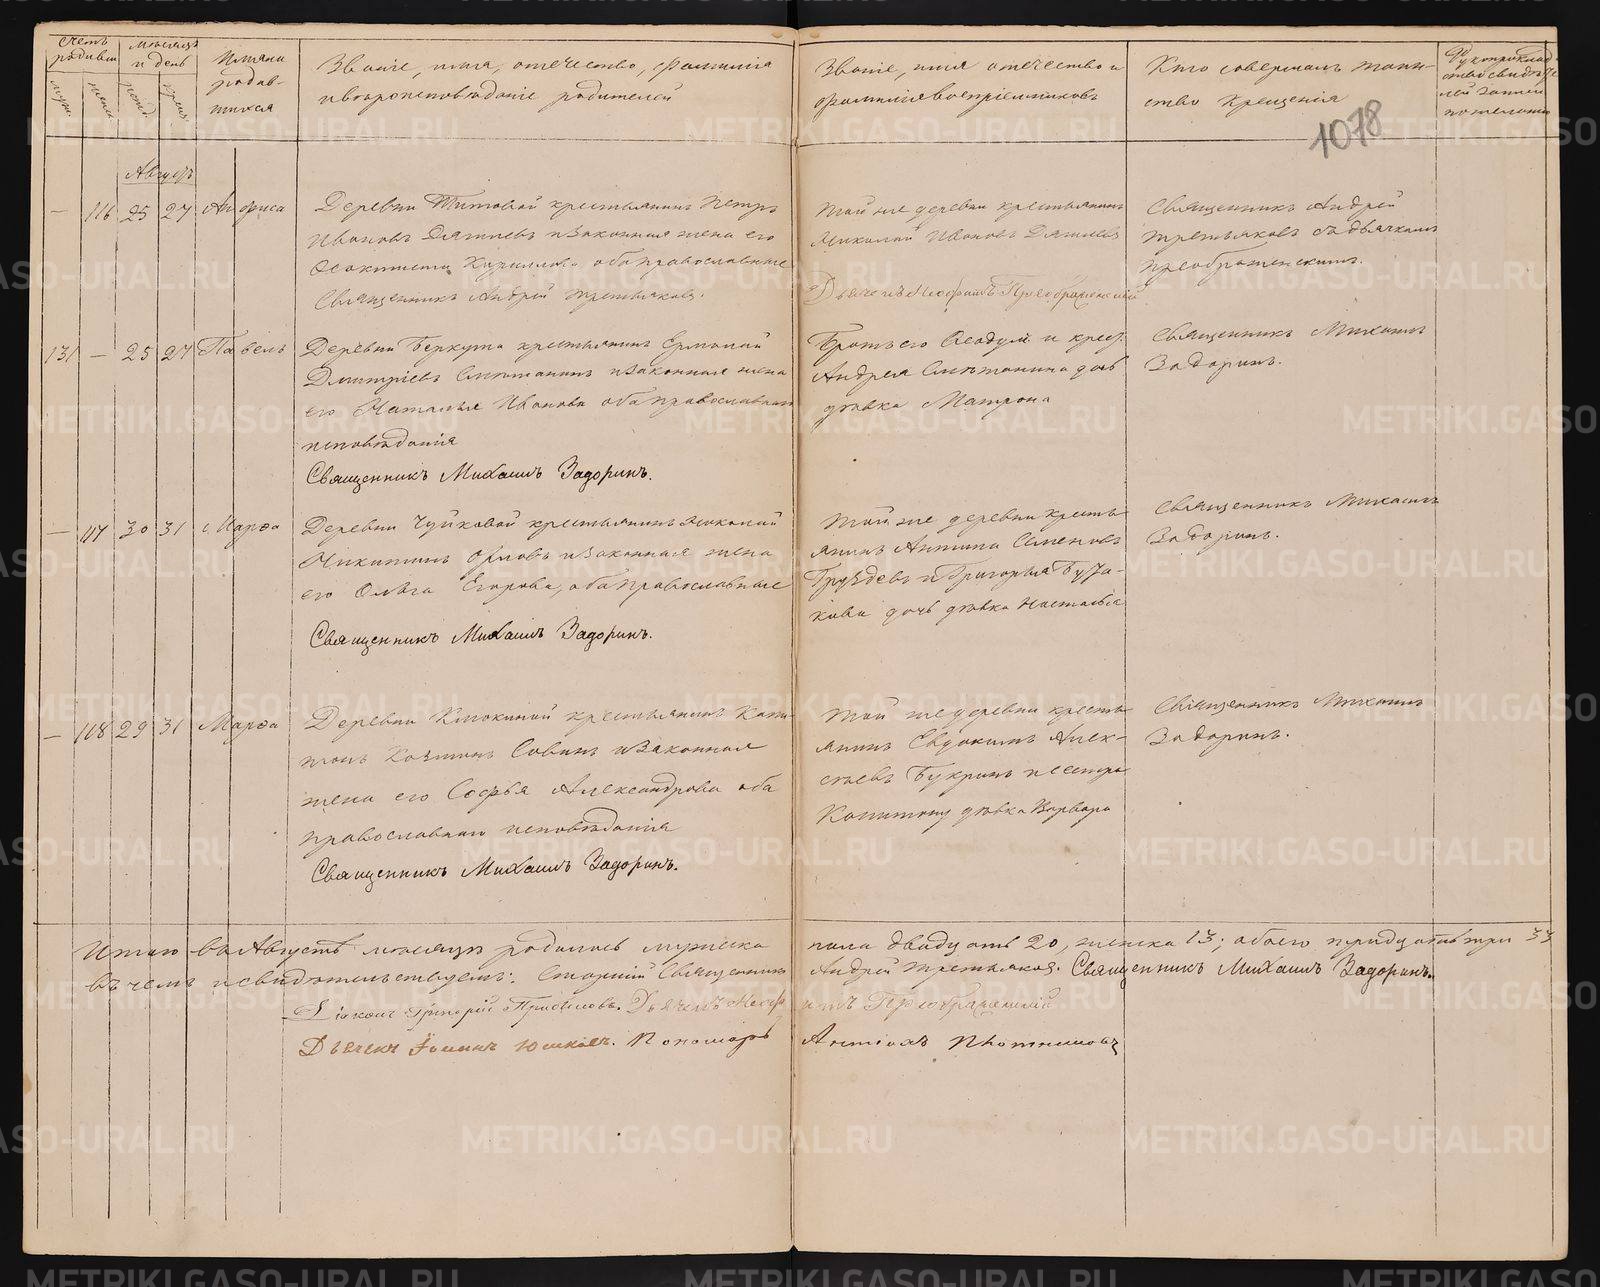 Счетъ родивш.
мужес.
женск.
Мѣсяцъ и день
рожд.
крещ.
Имена родив-
шихся
Званіе, имя, отечество, фамилія
и вѣроисповѣданіе родителей
Званіе, имя отечество и
фамилія воспріемниковъ
Кто совершалъ таин-
ство крещенія
Рукоприклад
ство свидѣте
лей записи
по желанію
1078
Августъ
— 116 25 27 Анфиса
Деревни Титовой крестьянинъ Петръ
Ивановъ и законная жена его
Кириллова оба православные
Священникъ Андрей Третьяковъ.
Той же деревни крестьянинъ
Николай Ивановъ
Дьячекъ Преображенскій
Священникъ Андрей
Третьяковъ съ дьячкомъ
Преображенскимъ.
131 — 25 27 Павелъ
Деревни Беркута крестьянинъ Ермолай
Дмитріевъ Сметанинъ и законная жена
его Наталья Иванова оба православнаго
исповѣданія
Священникъ Михаилъ Задоринъ.
Братъ его и крест.
Андрея Сметанина дочь
дѣвка Матрона
Священникъ Михаилъ
Задоринъ.
— 117 30 31 Марфа
Деревни Чуйковой крестьянинъ Николай
Никитинъ Орловъ и законная жена
его Ольга Егорова, оба православные
Священникъ Михаилъ Задоринъ.
Той же деревни кресть-
янинъ Антипа Семеновъ
Груздевъ и Григорья
дочь дѣвка Наталья
Священникъ Михаилъ
Задоринъ.
— 118 29 31 Марфа
Деревни крестьянинъ Капи-
тонъ Козминъ Савинъ и законная
жена его Софья Александрова оба
православнаго исповѣданія
Священникъ Михаилъ Задоринъ.
Той же деревни кресть-
янинъ Евдокимъ Алек-
сѣевъ Букринъ и сестра
Капитону дѣвка Варвара
Священникъ Михаилъ
Задоринъ.
Итого въ Августѣ мѣсяцѣ родилось мужеска пола двадцать 20, женска 13; обоего тридцать три 33
въ чемъ и свидѣтельствуемъ: Старшій Священникъ Андрей Третьяковъ. Священникъ Михаилъ Задоринъ.
Діаконъ Григорій. Дьячекъ Преображенскій
Дьячекъ Юшковъ. Пономарь Плотниковъ
METRIKI.GASO-URAL.RU